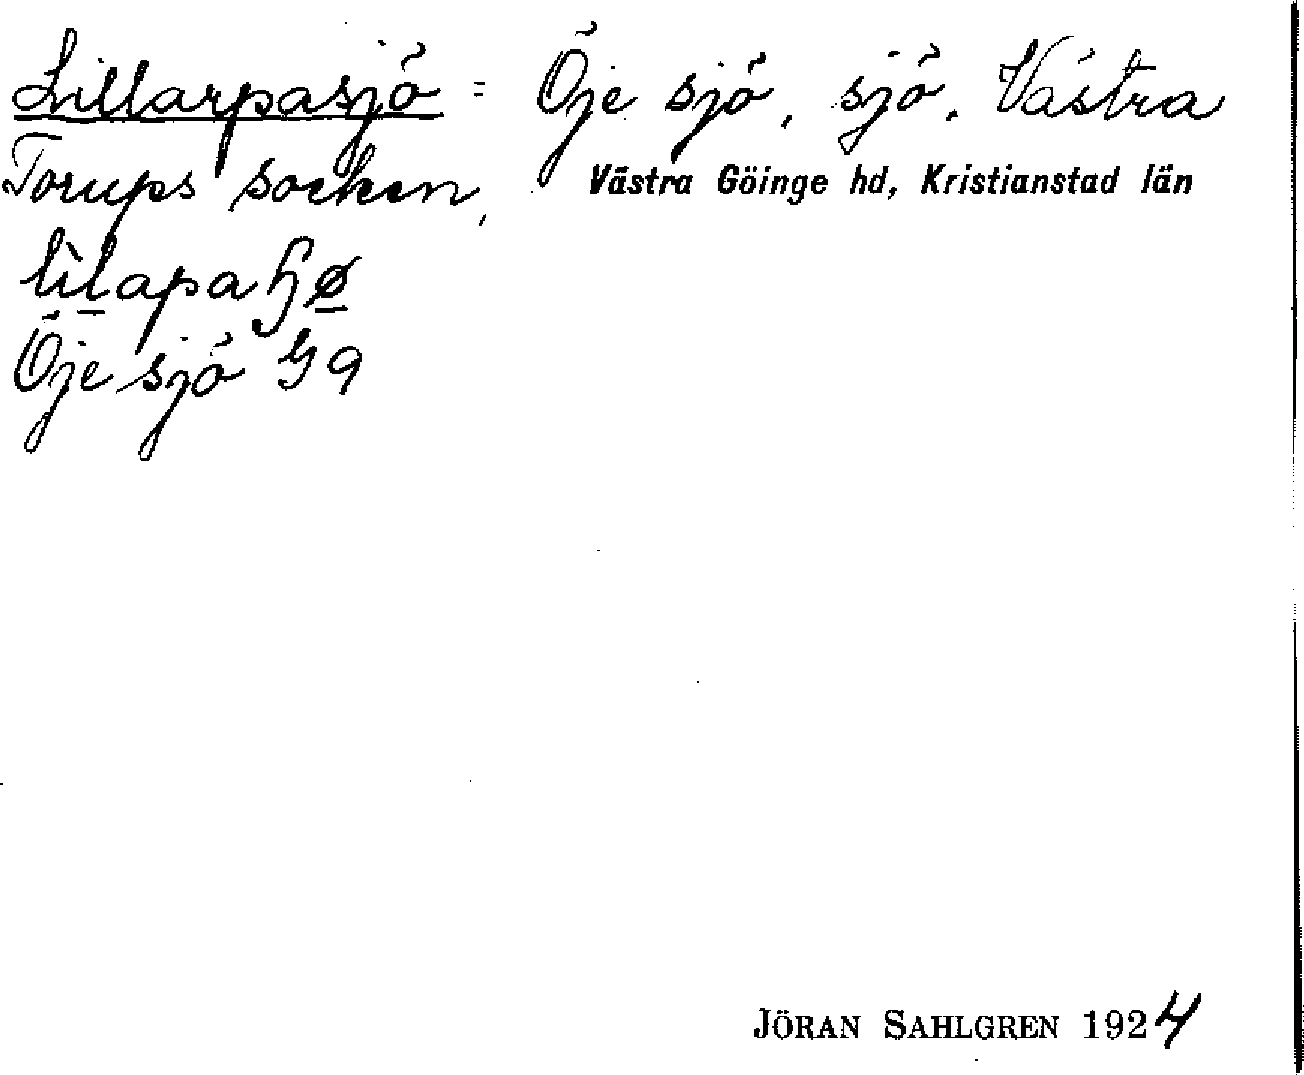 Lillarpasjö = Öje sjö, sjö. Västra
Torups socken, Västra Göinge hd, Kristianstad län
lìlapaɧø
Öje sjö G9
JÖRAN SAHLGREN 1924